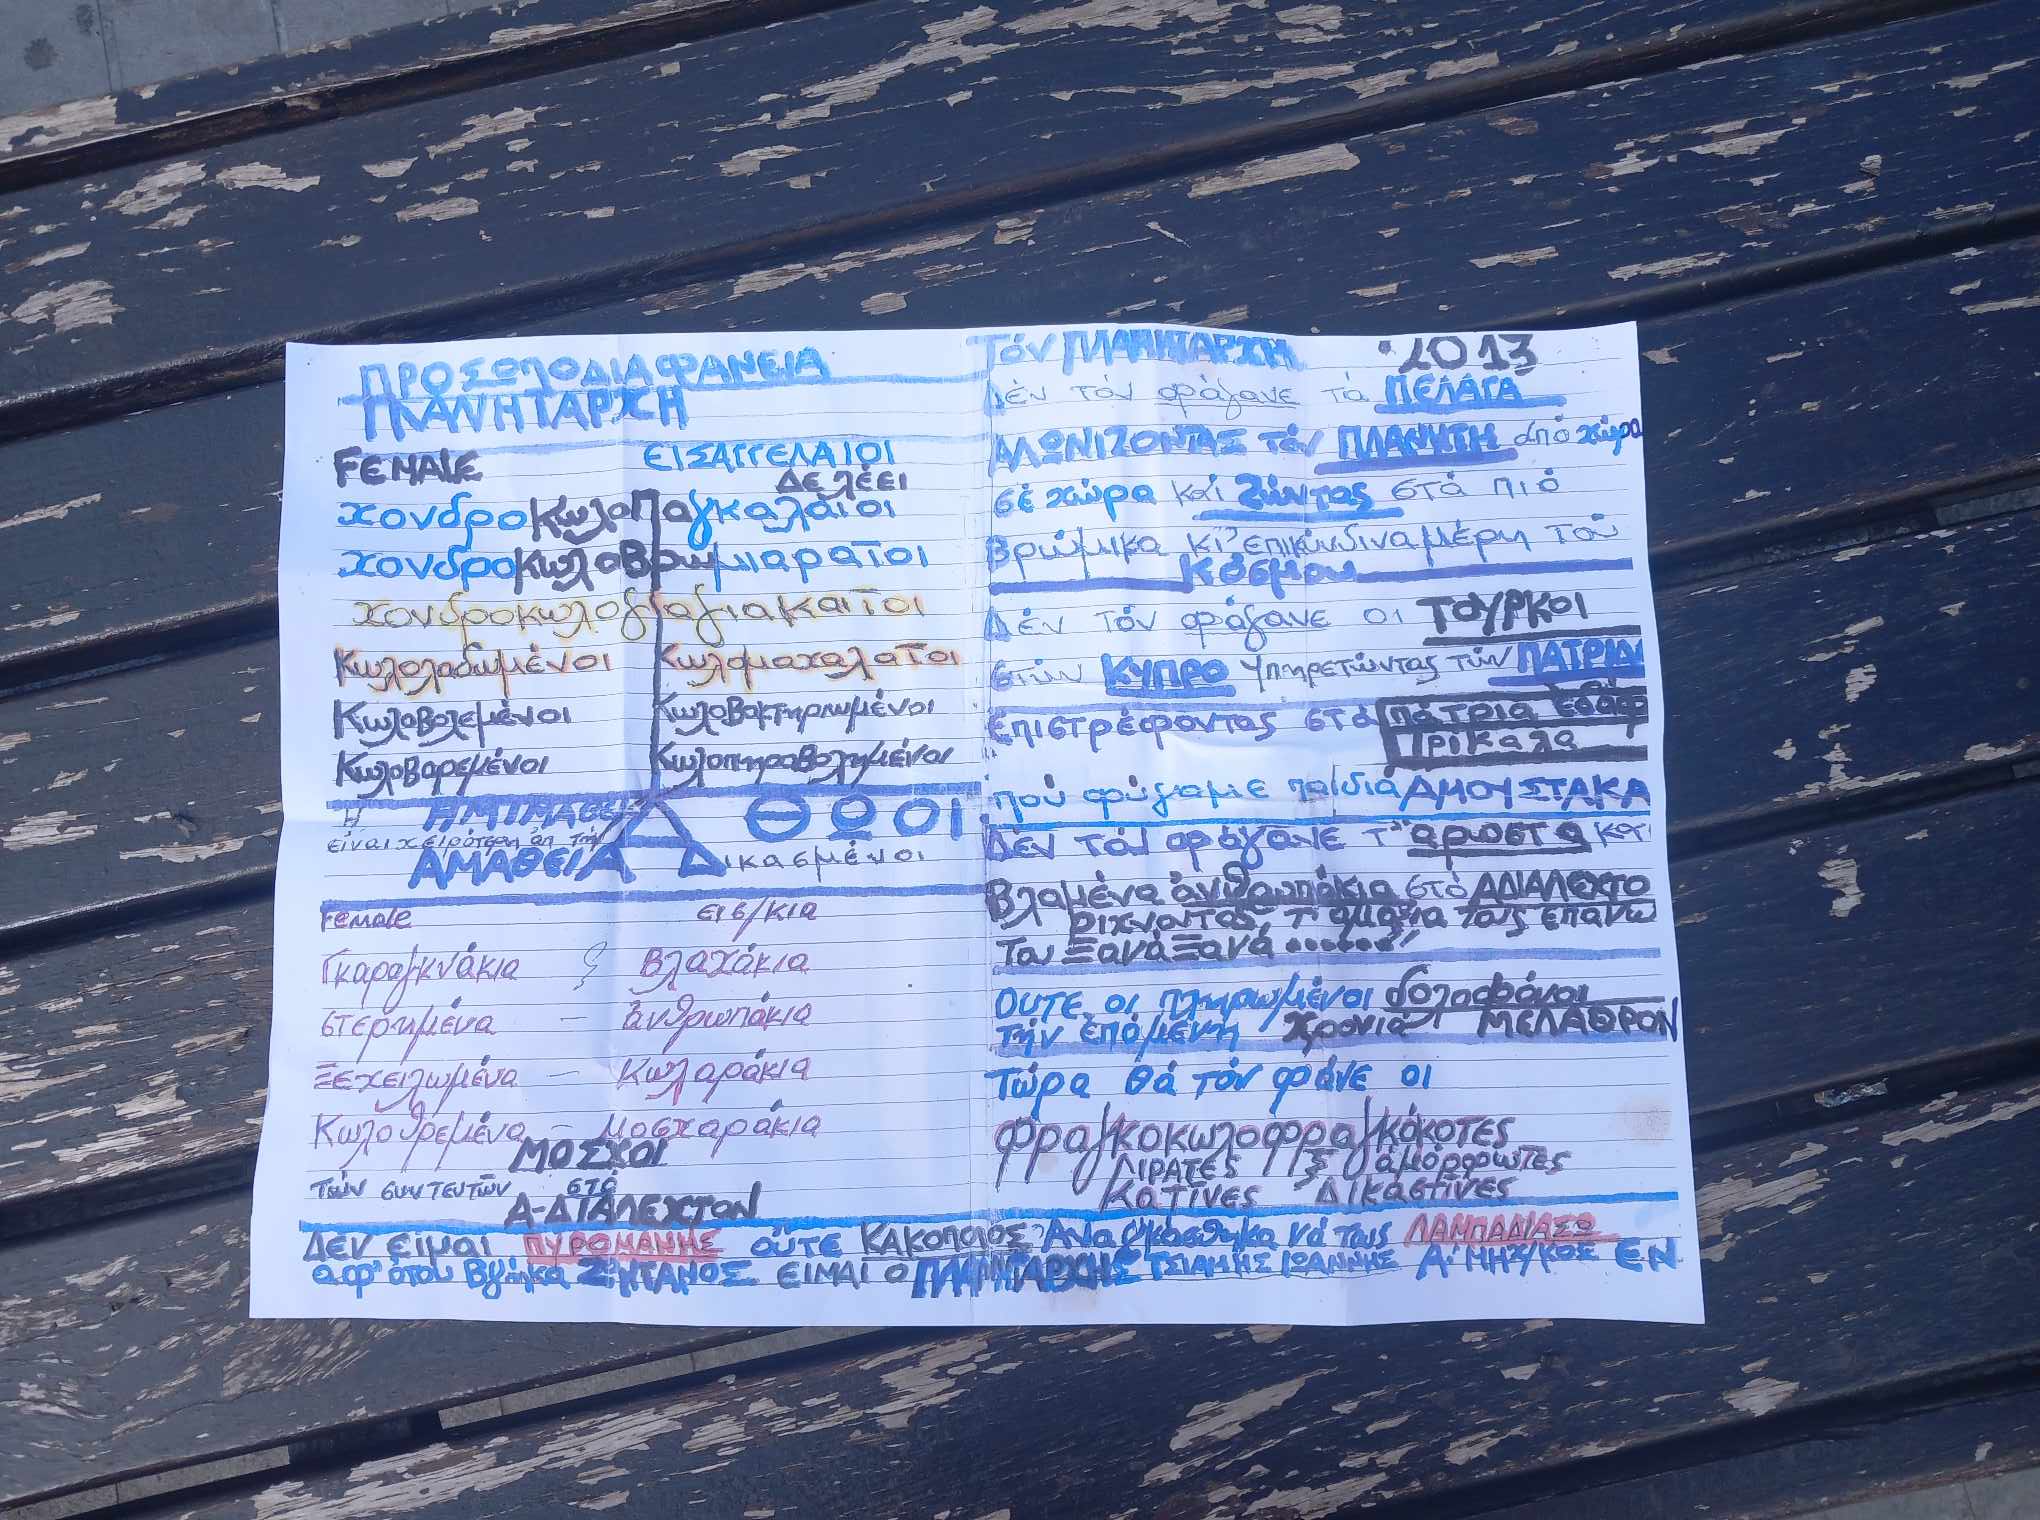 ΠΡΟΣΩΠΟΔΙΑΦΑΝΕΙΑ
ΠΛΑΝΗΤΑΡΧΗ
FEMALE ΕΙΣΑΓΓΕΛΑΙΟΙ
ΔΕ ΛΕΕΙ
χονδροκωλοπαγκαλάιοι
χονδροκωλοβρωμιαραῖοι
χονδροκωλογιαγιακαῖτοι
Κωλολαδωμένοι Κωλομαχαλαῖοι
Κωλοβολεμένοι Κωλοβακτηριωμένοι
Κωλοβαρεμένοι Κωλοπηροβολημένοι
Η ΗΜΙΜΑΘΕΙΑ ΑΘΩΟΙ
εἶναι χειρότερη ἀπ τήν
ΑΜΑΘΕΙΑ Δικασμένοι
Female εισ/κια
Γκαραγκνάκια ξ Βλαχάκια
στερημένα – ἀνθρωπάκια
Ξεχειλωμένα – Κωλαράκια
Κωλουρεμένα – μοσχαράκια
ΜΟΣΧΟΙ
τῶν συντευτῶν στό
Α-ΔΙΑΛΕΧΤΟΝ
Τόν ΠΛΑΝΗΤΑΡΧΗ 2013
Δέν τόν φάγανε τά ΠΕΛΑΓΑ
ΑΛΩΝΙΖΟΝΤΑΣ τόν ΠΛΑΝΗΤΗ ἀπό χώρα
σέ χώρα καί Ζώντας στά πιό
βρώμικα κι' επικίνδινα μέρη τοῦ
Κόσμου
Δέν τόν φάγανε οι ΤΟΥΡΚΟΙ
στήν ΚΥΠΡΟ υπηρετώντας τήν ΠΑΤΡΙΔΑ
Επιστρέφοντας στά πάτρια εδάφ
Τρίκαλα
πού φύγαμε παιδιά ΑΜΟΥΣΤΑΚΑ
Δέν τόν φάγανε τ' ἄρωστα και
Βλαμένα ἀνθρωπάκια στό ΑΔΙΑΛΕΧΤΟ
ριχνοντας τ' αμάξια τους επάνω
Του ΞανάΞανά ......!
ΟΥΤΕ οι πληρωμένοι δολοφόνοι
τήν ἑπόμενη χρονιά ΜΕΛΑΘΡΟΝ
Τώρα θά τόν φάνε οι
φραγκοκωλοφραγκόκοτες
ΛΙΡΑΤΕΣ ξ ἀμόρφωτες
Κατῖνες Δικαστῖνες
ΔΕΝ ΕΙΜΑΙ ΠΥΡΟΜΑΝΗΣ οὔτε ΚΑΚΟΠΟΙΟΣ Αναγκάσθηκα νά τους ΛΑΜΠΑΔΙΑΣΩ
αφ' ότου βγήκα ΖΗΤΑΝΟΣ ΕΙΜΑΙ Ο ΠΛΑΝΗΤΑΡΧΗΣ ΤΣΙΑΜΗΣ ΙΩΑΝΝΗΣ Α' ΜΗΧ/ΚΟΣ ΕΝ